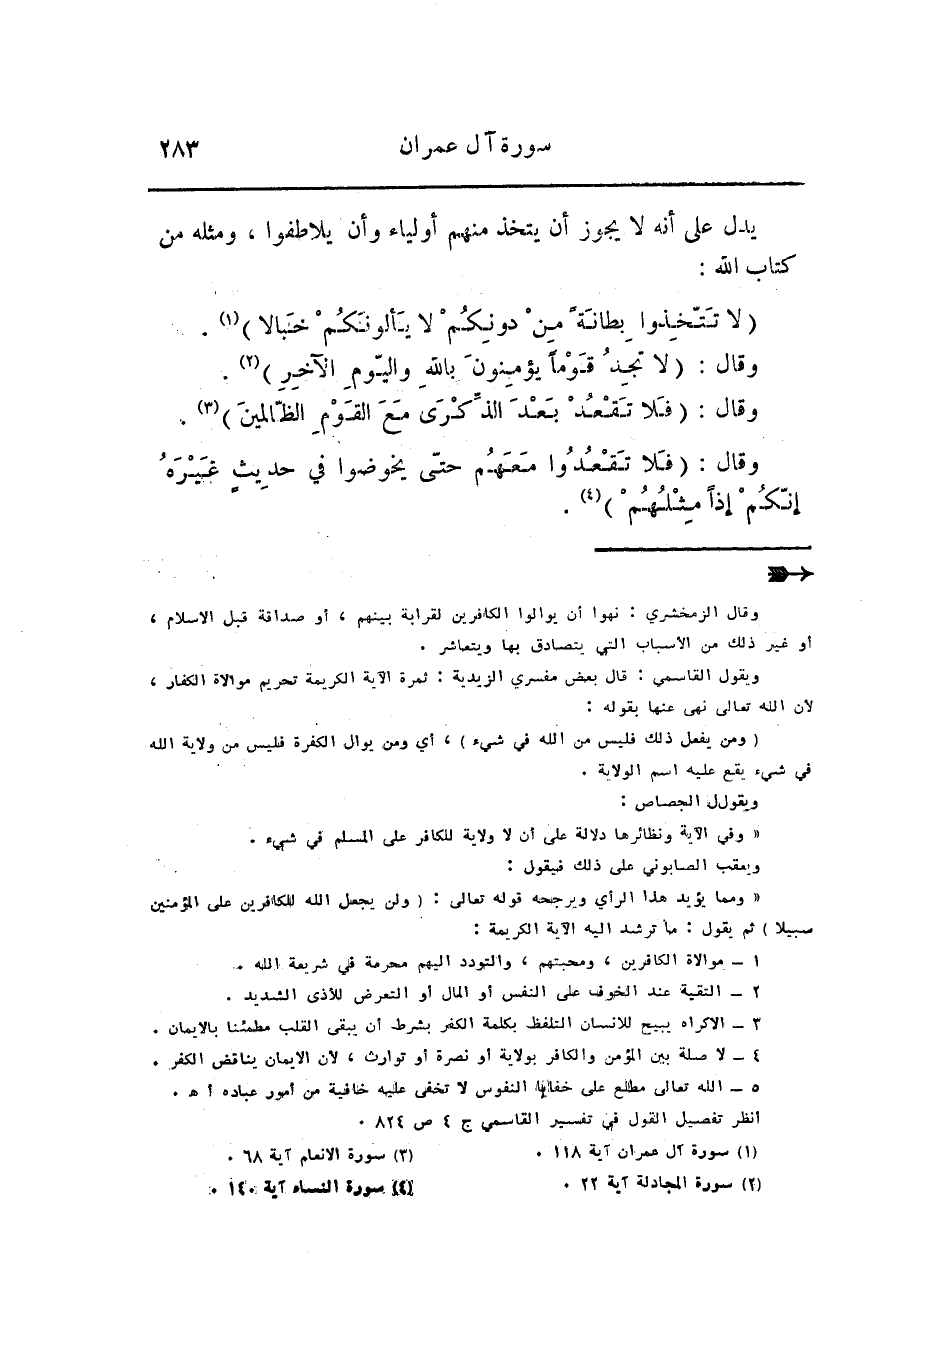 سورة آل عمران ٢٨٣
يدل على أنه لا يجوز أن يتخذ منهم أولياء وأن يلاطفوا ، ومثله من
كتاب الله :
( لا تَتّخِذوا بِطانَةً مِنْ دونِكُمْ لا يَألونَكُمْ خَبالا )(١) .
وقال : ( لا تجِدُ قَوْماً يؤمِنونَ باللهِ واليَومِ الآخِرِ )(٢) .
وقال : ( فَلا تَقْعُدْ بَعْدَ الذِّكْرَى مَعَ القَوْمِ الظّالمينَ )(٣) .
وقال : ( فَلا تَقْعُدُوا مَعَهُم حتّى يخوضوا في حديثٍ غَيْرَهُ
إنّكُمْ إذاً مِثْلُهُمْ )(٤) .
وقال الزمخشري : نهوا أن يوالوا الكافرين لقرابة بينهم ، أو صداقة قبل الاسلام ،
أو غير ذلك من الأسباب التي يتصادق بها ويتعاشر .
ويقول القاسمي : قال بعض مفسري الزيدية : ثمرة الآية الكريمة تحريم موالاة الكفار ،
لأن الله تعالى نهى عنها بقوله :
( ومن يفعل ذلك فليس من الله في شيء ) ، أي ومن يوال الكفرة فليس من ولاية الله
في شيء يقع عليه اسم الولاية .
ويقولل الجصاص :
« وفي الآية ونظائرها دلالة على أن لا ولاية للكافر على المسلم في شيء .
ويعقب الصابوني على ذلك فيقول :
« ومما يؤيد هذا الرأي ويرجحه قوله تعالى : ( ولن يجعل الله للكافرين على المؤمنين
سبيلا ) ثم يقول : ما ترشد اليه الآية الكريمة :
١ – موالاة الكافرين ، ومحبتهم ، والتودد اليهم محرمة في شريعة الله .
٢ – التقية عند الخوف على النفس أو المال أو التعرض للأذى الشديد .
٣ – الاكراه يبيح للانسان التلفظ بكلمة الكفر بشرط أن يبقى القلب مطمئنا بالايمان .
٤ – لا صلة بين المؤمن والكافر بولاية أو نصرة أو توارث ، لأن الايمان يناقض الكفر .
٥ – الله تعالى مطلع على خفايا النفوس لا تخفى عليه خافية من أمور عباده أ هـ .
أنظر تفصيل القول في تفسير القاسمي ج ٤ ص ٨٢٤ .
(١) سورة آل عمران آية ١١٨ .
(٢) سورة المجادلة آية ٢٢ .
(٣) سورة الانعام آية ٦٨ .
(٤) سورة النساء آية ١٤٠ .